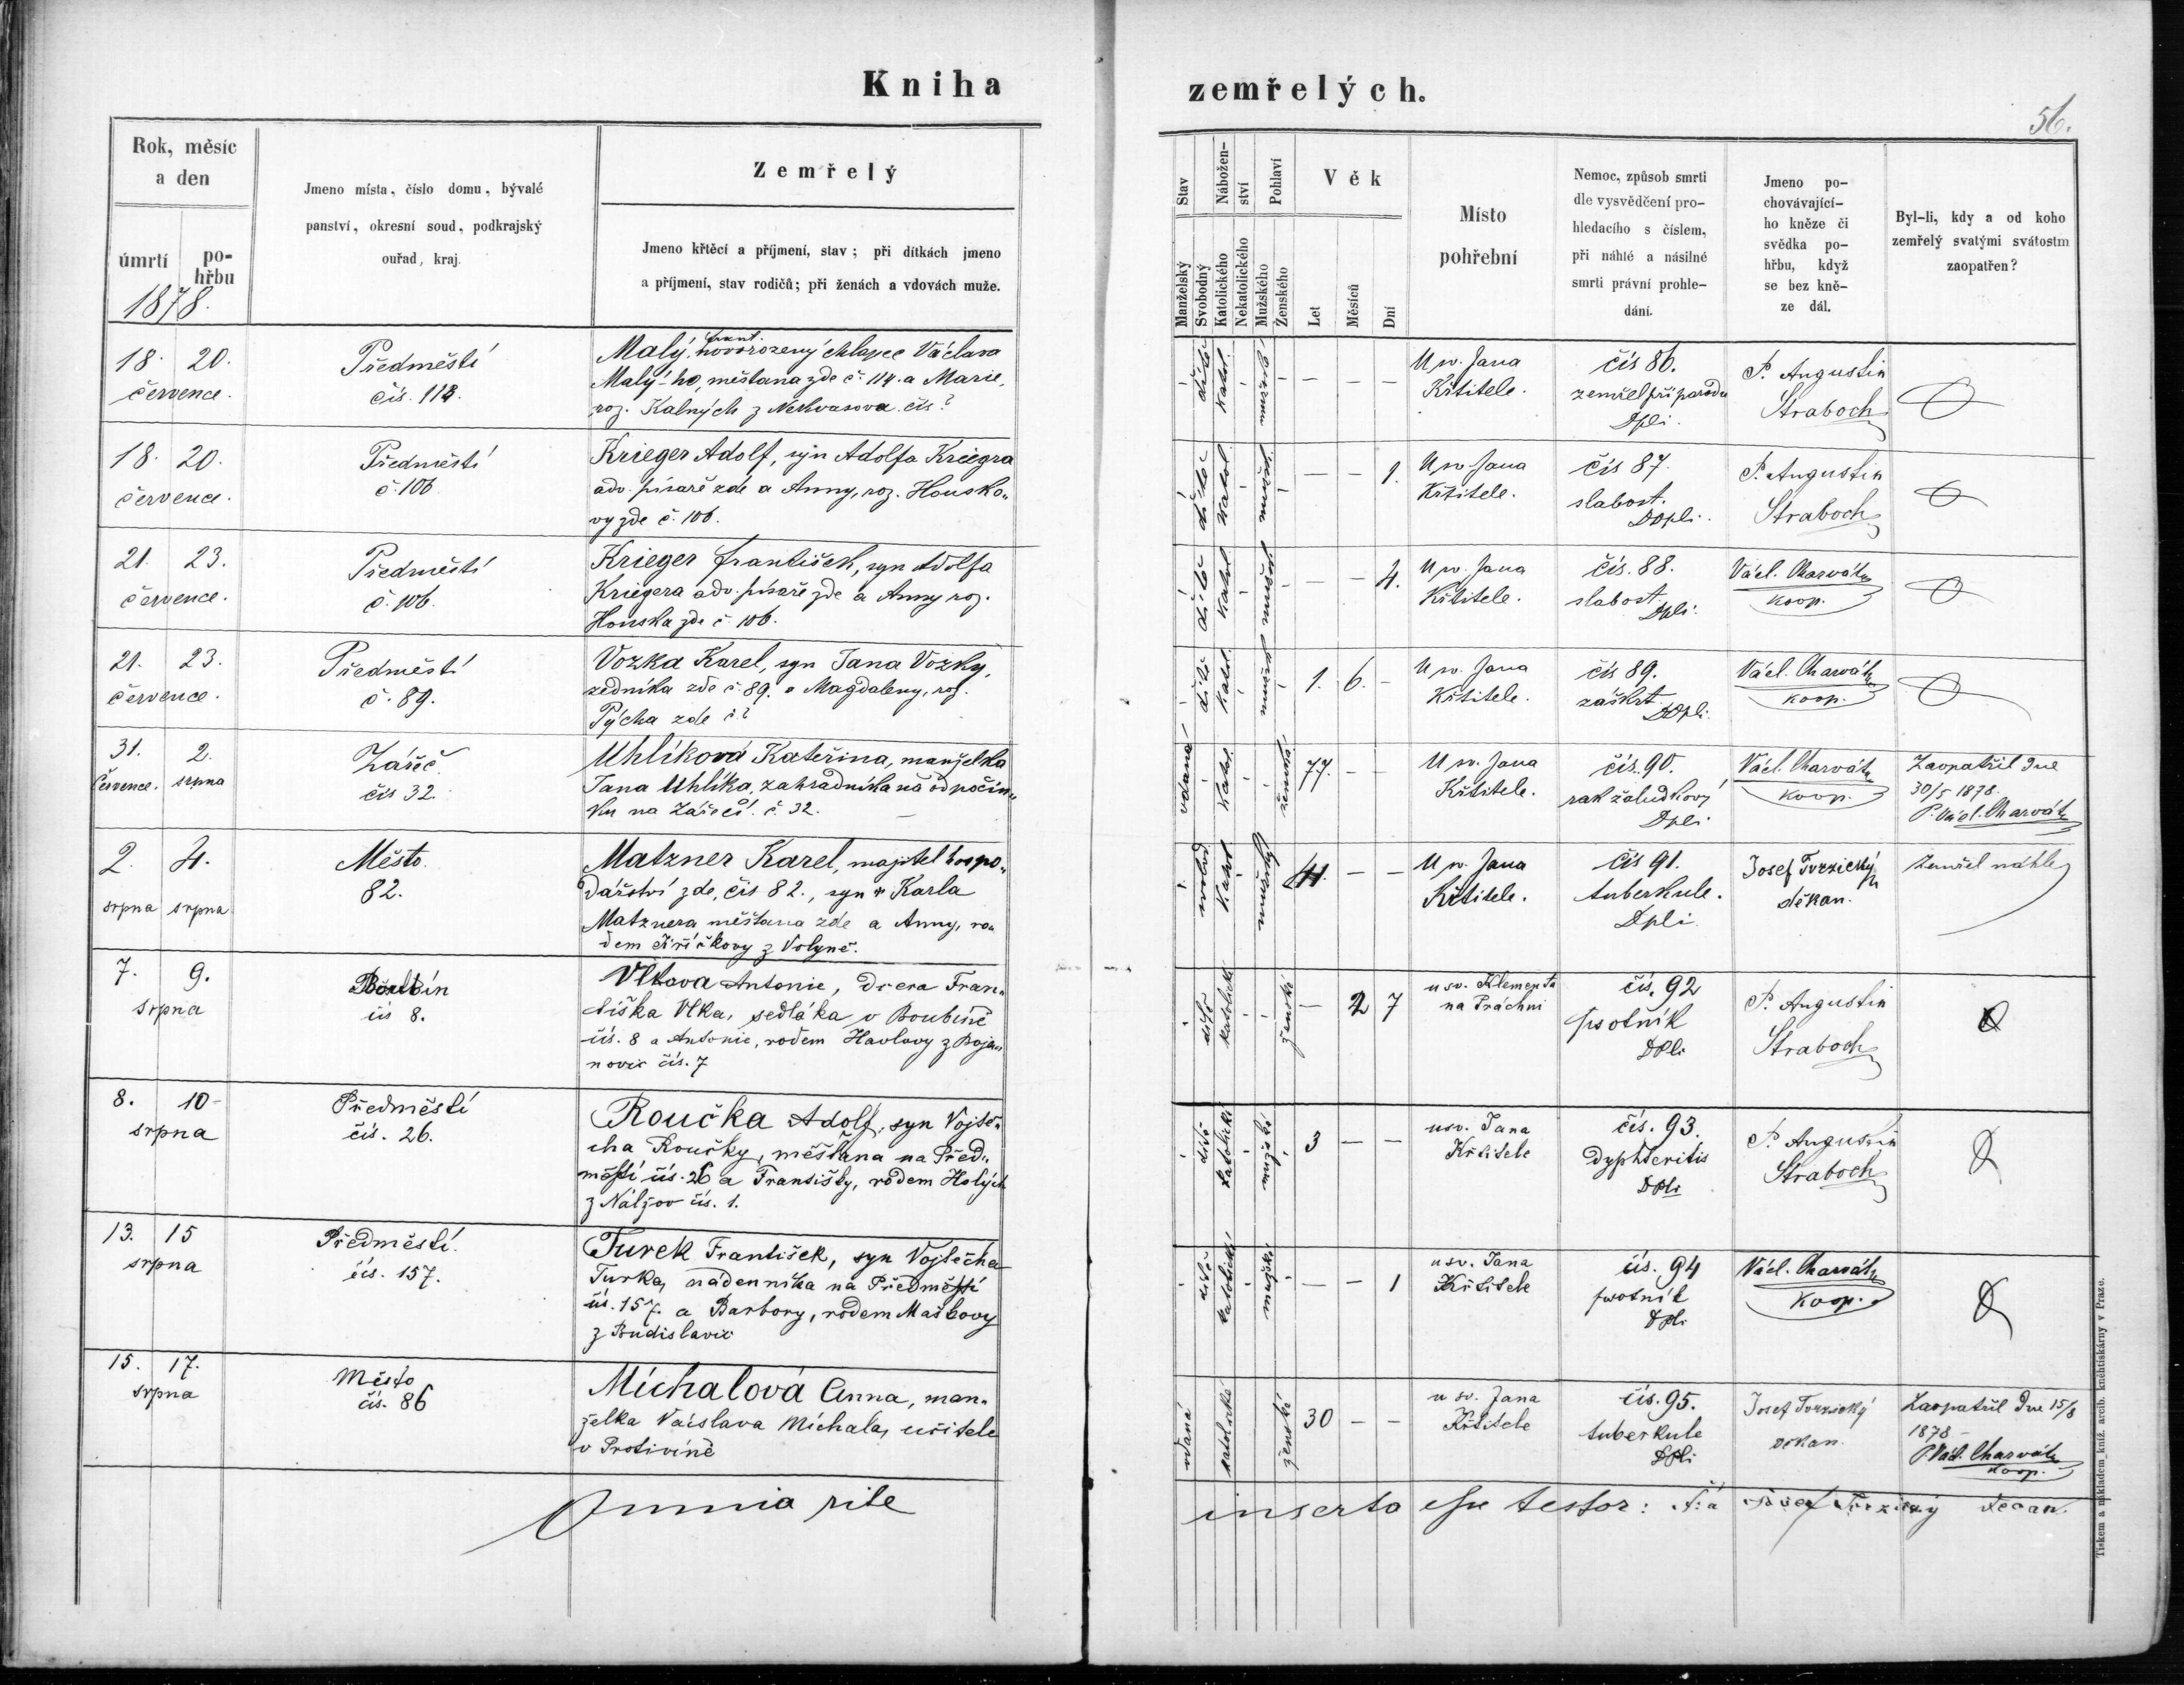 Kniha
zemřelých.
56.
Rok, měsíc
a den
úmrtí
po-
hřbu
1878.
Jmeno místa, číslo domu, bývalé
panství, okresní soud, podkrajský
ouřad, kraj.
Zemřelý
Jmeno křtěcí a příjmení, stav; při dítkách jmeno
a příjmení, stav rodičů; při ženách a vdovách muže.
Stav
Manželský
Svobodný
Nábožen-
ství
Katolického
Nekatolického
Pohlaví
Mužského
Ženského
Věk
Let
Měsíců
Dní
Místo
pohřební
Nemoc, způsob smrti
dle vysvědčení pro-
hledacího s číslem,
při náhlé a násilné
smrti právní prohle-
dání.
Jmeno po-
chovávající-
ho kněze či
svědka po-
hřbu, když
se bez kně-
ze dál.
Byl-li, kdy a od koho
zemřelý svatými svátostm
zaopatřen?
18. 20.
července.
Předměstí
čís. 118.
Malý, novorozený chlapec Václava
Malý-ho, měštana zde č. 114. a Marie,
roz. Kalných z Nekvasova čís?
dítě
katol.
– – –
U sv. Jana
Křtitele.
čís 86.
zemřel při porodu
Dpli.
P. Augustin
Straboch
18. 20.
července.
Předměstí
č. 106
Krieger Adolf, syn Adolfa Kriegra
adv. písaře zde a Anny, roz. Housko„
vy zde č. 106.
dítě
katol.
– – 1.
U sv. Jana
Křtitele.
čís 87.
slabost.
Dopli.
P. Augustin
Straboch
21. 23.
července.
Předměstí
č. 106.
Krieger František, syn Adolfa
Kriegera adv. písaře zde a Anny roz.
Houska zde č. 106.
dítě
katol
– – 4.
U sv. Jana
Křtitele.
čís. 88.
slabost.
Dpli.
Václ. Charvát
koop.
21. 23.
července.
Předměstí
č. 89.
Vozka Karel, syn Jana Vozky,
zedníka zde č. 89. a Magdaleny, roz.
Pýcha zde č?
dítě
katol.
1. 6. –
U sv. Jana
Křtitele.
čís 89.
záškrt.
Dopli.
Václ. Charvát
koop.
31. 2.
července. srpna
Zářeč
čís 32.
Uhlíková Kateřina, manželka
Jana Uhlíka, zahradníka na odpočin„
ku na Zářečí. č. 32.
vdaná
katol.
ženská
77. – –
U sv. Jana
Křtitele.
čís. 90.
rak žaludkový
Dpli
Václ. Charvát
koop.
Zaopatřil dne
30/5 1878.
P. Václ. Charvát
2. 4.
srpna srpna
Město.
82.
Matzner Karel, majitel hospo„
dářství zde, čís 82., syn Karla
Matznera měštana zde a Anny, ro„
dem z Volyně.
svobod
katol
mužský
41. – –
U sv. Jana
Křtitele.
čís 91.
tuberkule.
Dpli.
Josef Tvrzický
děkan.
Zemřel náhle
7. 9.
srpna
čís 8.
Vlkova Antonie, dcera Fran„
tiška Vlka, sedláka v Boubíně
čís. 8 a Antonie, rodem Havlovy z Boja„
novic čís. 7
dítě
katolické
ženské
– 2 7
u sv. Klementa
na Práchni
čís. 92
psotník
Dpli
P. Augustin
Straboch
8. 10
srpna
Předměstí
čís. 26.
Roučka Adolf, syn Vojtě„
cha Roučky, měšťana na Před„
městí čís. 26 a Františky, rodem Holých
z Nálžov čís. 1.
dítě
katolické
mužské
3 – –
u sv. Jana
Křtitele
čís. 93.
dyphteritis
Dpli
P. Augustin
Straboch
13. 15
srpna
Předměstí.
čís. 157.
Turek František, syn Vojtěcha
Turka, nádenníka na Předměstí
čís. 157. a Barbory, rodem Maškovy
z Budislavic
dítě
katolické
mužské
– – 1
u sv. Jana
Křtitele
čís. 94
psotník
Dpli
Václ. Charvát
koop.
15. 17.
srpna
Město
čís. 86
Míchalová Anna, man„
želka Václava Míchala, učitele
v Protivíně
vdaná
katolické
ženské
30 – –
u sv. Jana
Křtitele
čís. 95.
tuberkule
Dpli
Josef Tvrzický
děkan.
Zaopatřil dne 15/8
1878 –
P. Václ. Charvát
koop.
Omnia rite
inserta esse testor: Josef Tvrzický decan.
Tiskem a nákladem kníž. arcib. knihtiskárny v Praze.